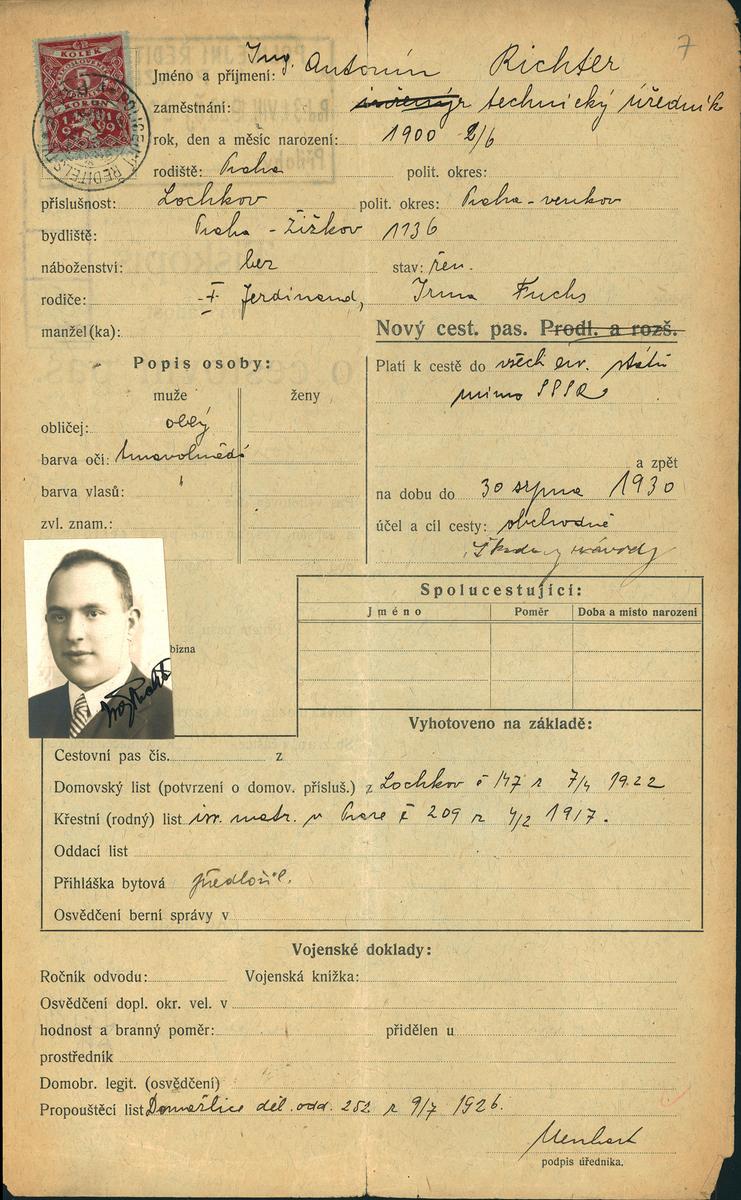 7
5
KOLEK
KORUN
1919
Jméno a příjmení: Ing. Antonín Richter
zaměstnání: inženýr technický úředník
rok, den a měsíc narození: 1900 2/6
rodiště: Praha polit. okres:
příslušnost: Lochkov polit. okres: Praha-venkov
bydliště: Praha - Žižkov 1136
náboženství: bez stav: žen.
rodiče: Ferdinand, Irma Fuchs
manžel(ka):
Nový cest. pas. Prodl. a rozš.
Popis osoby:
muže ženy
obličej: oblý
barva očí: tmavohnědé
barva vlasů:
zvl. znam.:
Platí k cestě do všech ev. států
mimo SSSR
a zpět
na dobu do 30 srpna 1930
účel a cíl cesty: obchodně
Škodovy závody
bizna
Spolucestující:
Jméno Poměr Doba a místo narození
Vyhotoveno na základě:
Cestovní pas čís. z
Domovský list (potvrzení o domov. přísluš.) z Lochkov č 147 z 7/4 1922
Křestní (rodný) list isr. matr. v Praze č 209 z 4/2 1917.
Oddací list
Přihláška bytová předložil.
Osvědčení berní správy v
Vojenské doklady:
Ročník odvodu: Vojenská knížka:
Osvědčení dopl. okr. vel. v
hodnost a branný poměr: přidělen u
prostředník
Domobr. legit. (osvědčení)
Propouštěcí list Domažlice děl. odd. 252 z 9/7 1926.
podpis úředníka.